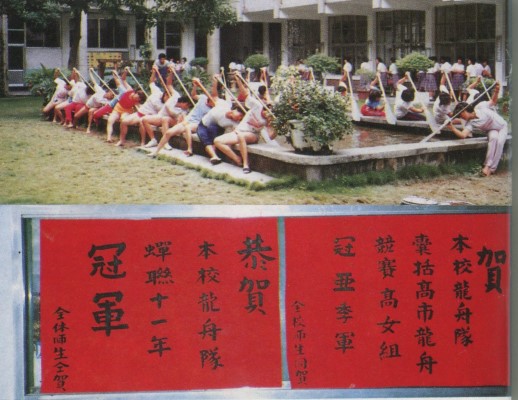 賀
本校龍舟隊
囊括高市龍舟
競賽高女組
冠亞季軍
全校师生同賀
恭賀
本校龍舟隊
蟬聯十一年
冠軍
全体师生仝賀